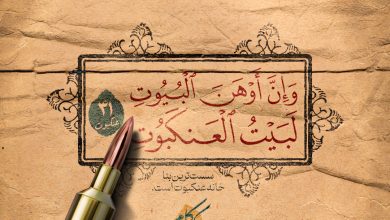 وَإِنَّ أَوْهَنَ ٱلْبُيُوتِ
لَبَيْتُ ٱلْعَنكَبُوتِ
۴۱
عنکبوت
سست‌ترین بنا
خانه عنکبوت است.